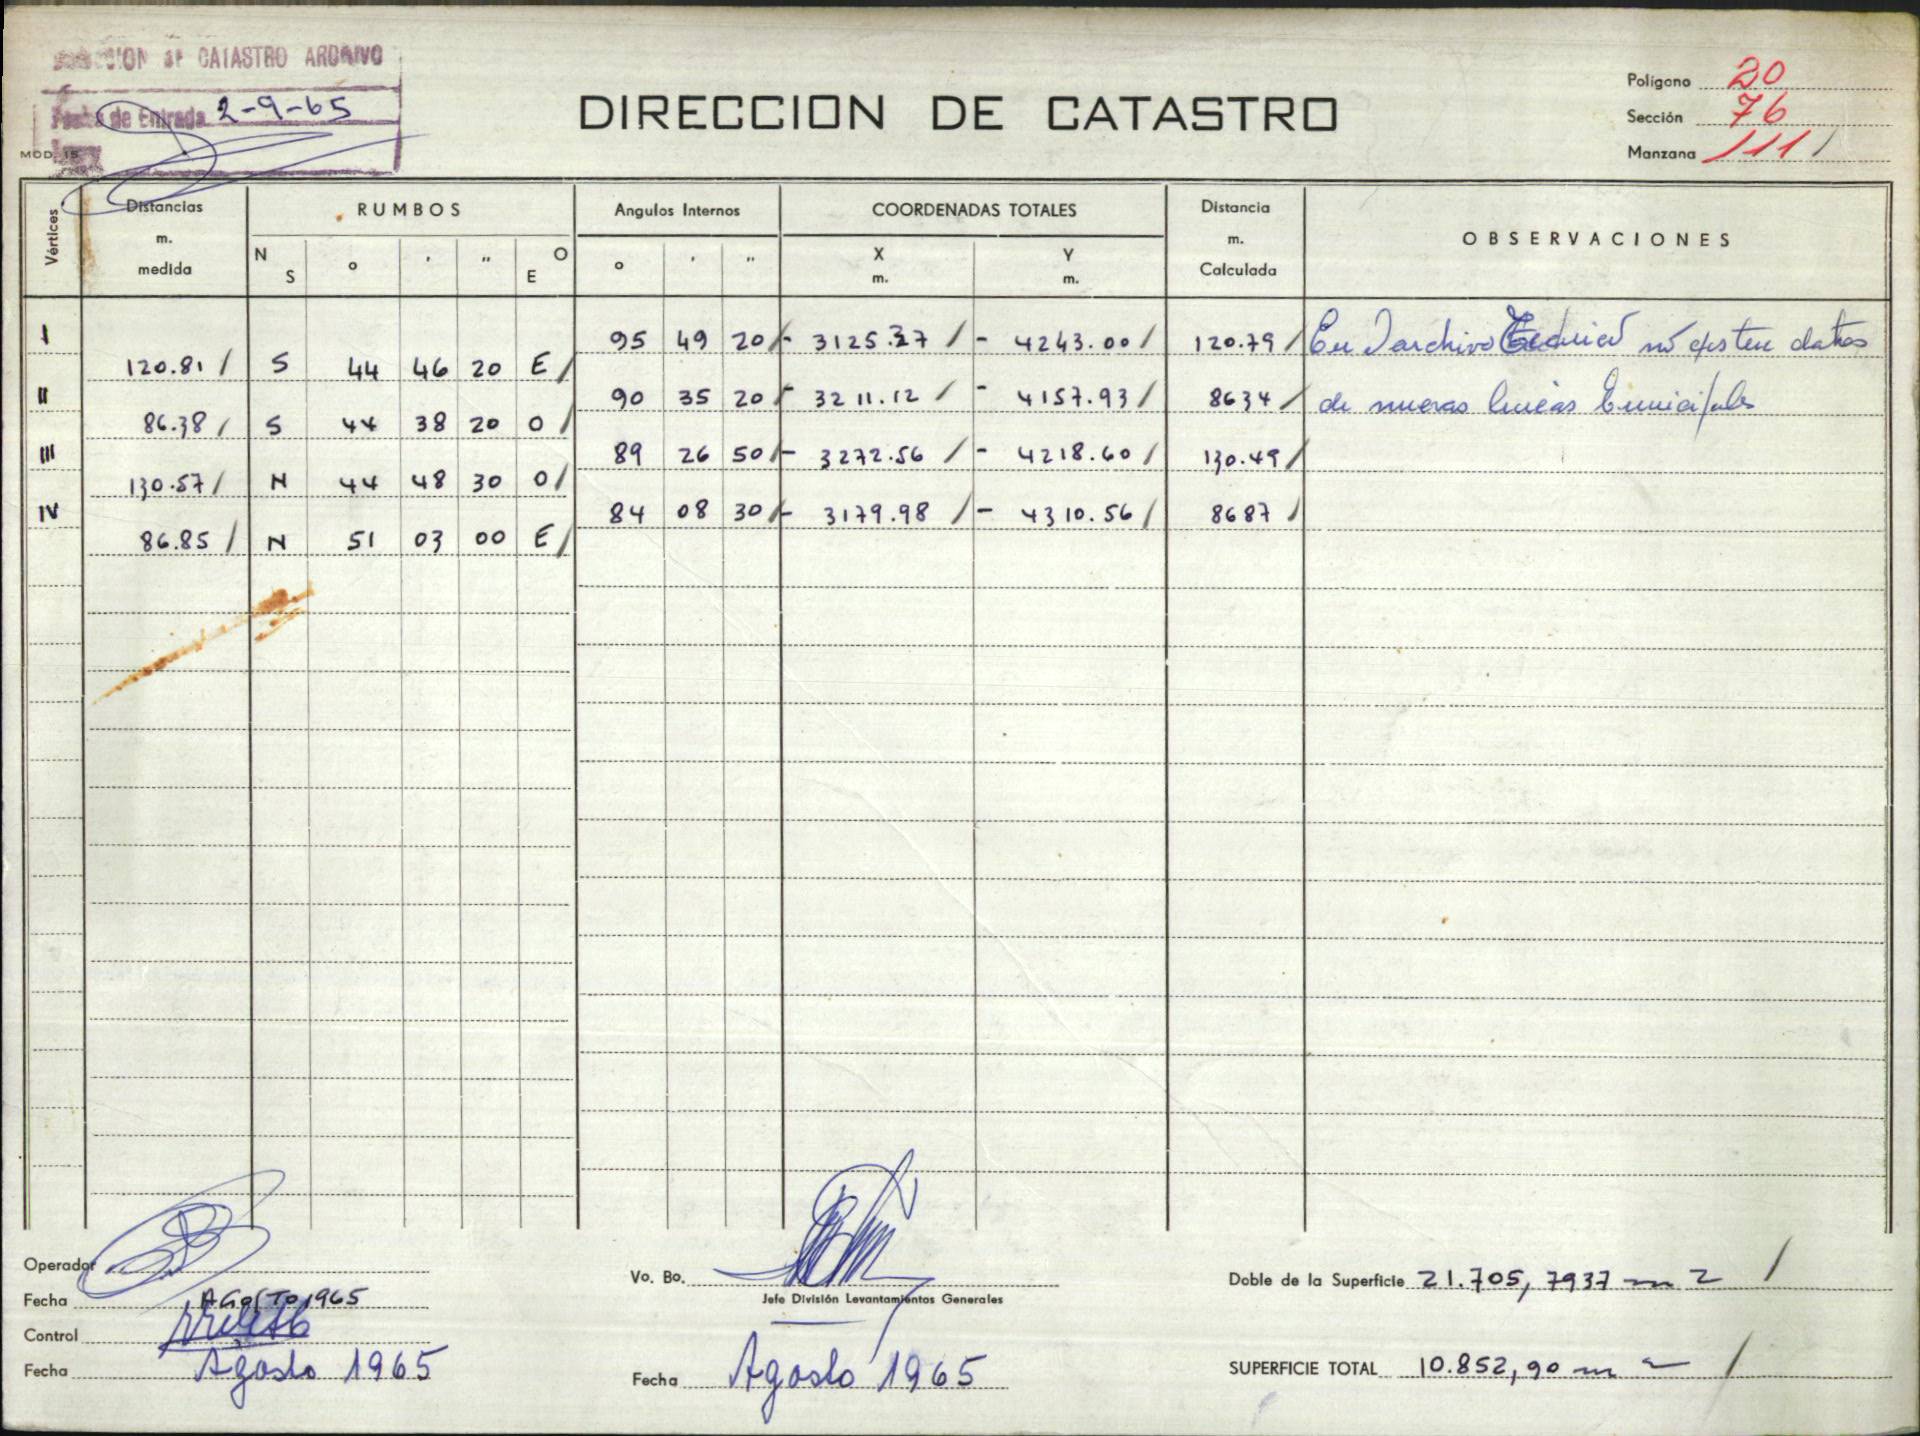 DIRECCION DE CATASTRO ARCHIVO
Fecha de Entrada 2-9-65
MOD. 15
DIRECCION DE CATASTRO
Polígono 20
Sección 76
Manzana 111 /
Vértices Distancias m. medida RUMBOS Angulos Internos COORDENADAS TOTALES Distancia m. Calculada OBSERVACIONES
N S ° ' " O E ° ' " X m. Y m.
I 95 49 20 / - 3125.37 / - 4243.00 / 120.79 / En archivo no existen datos
120.81 / S 44 46 20 E /
II 90 35 20 / - 3211.12 / - 4157.93 / 8634 / de nuevas lineas
86.38 / S 44 38 20 O /
III 89 26 50 / - 3272.56 / - 4218.60 / 130.49 /
130.57 / N 44 48 30 O /
IV 84 08 30 / - 3179.98 / - 4310.56 / 8687 /
86.85 / N 51 03 00 E /
Operador
Fecha AGOSTO 1965
Control
Fecha Agosto 1965
Vo. Bo.
Jefe División Levantamientos Generales
Fecha Agosto 1965
Doble de la Superficie 21.705,7937 m 2 /
SUPERFICIE TOTAL 10.852,90 m 2 /